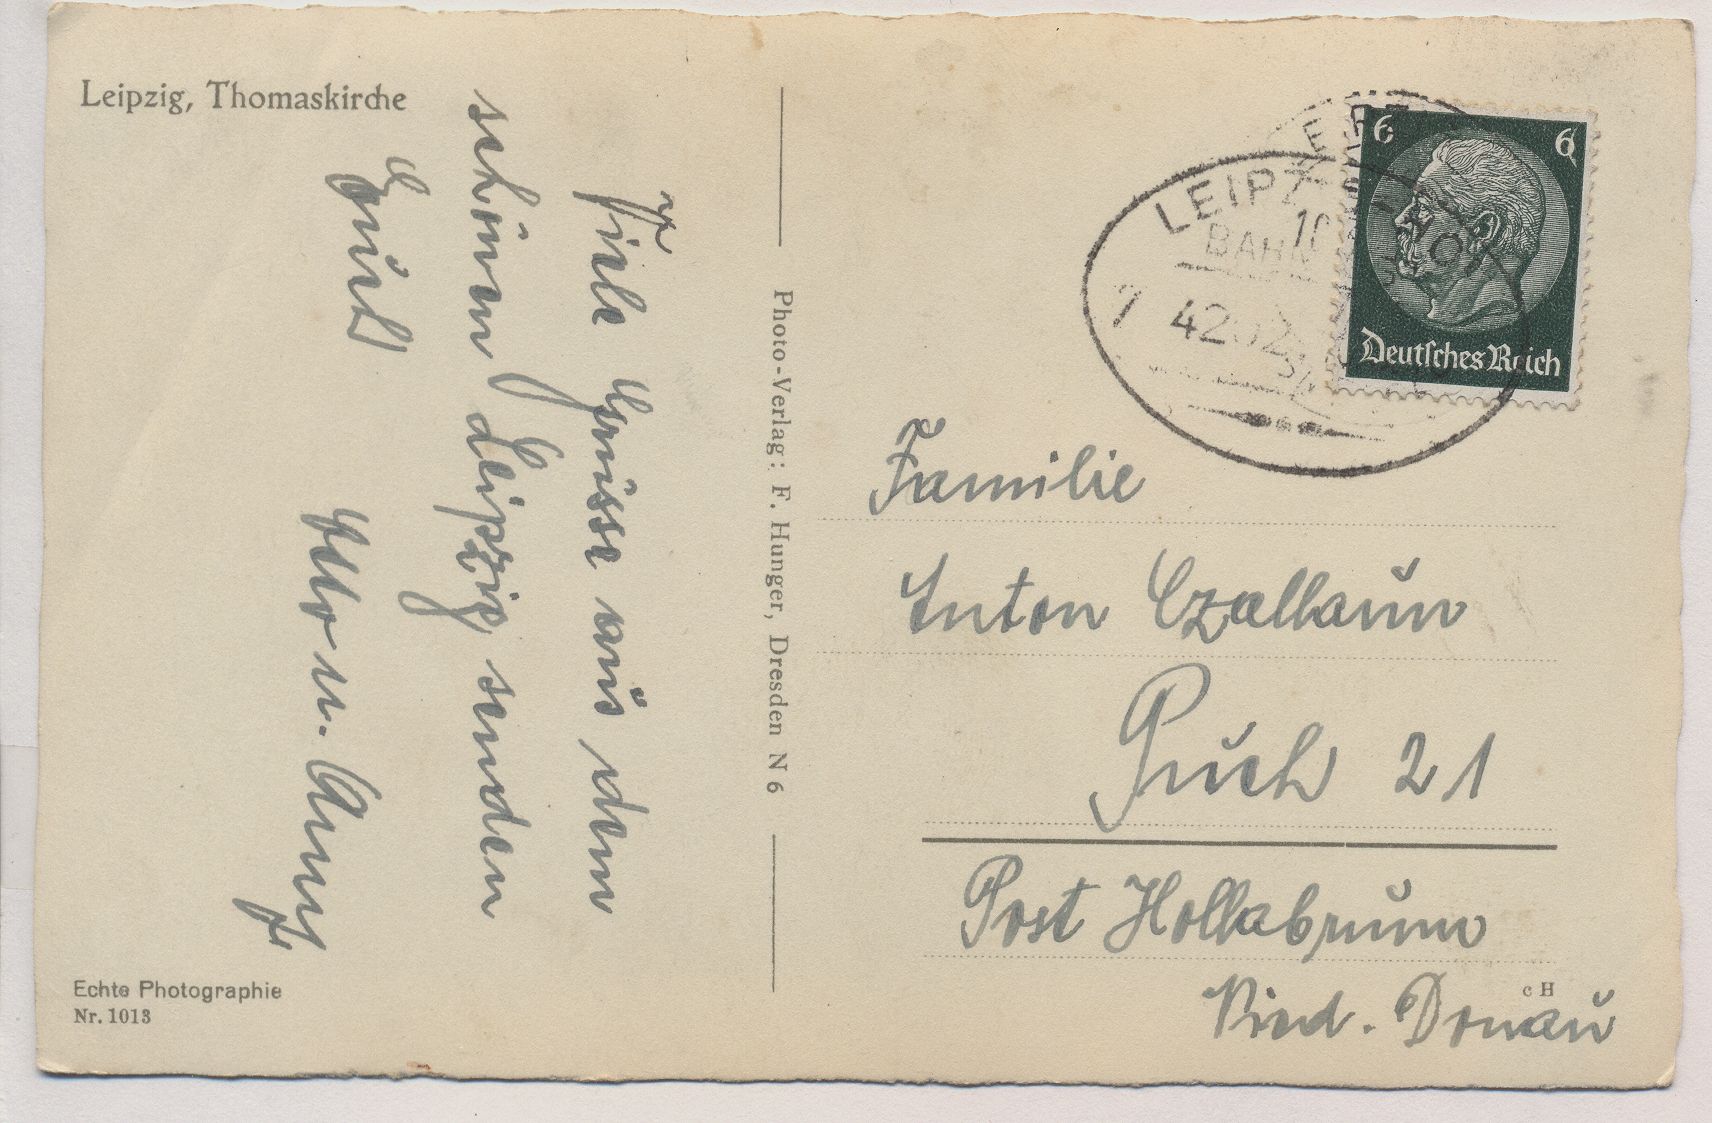 Leipzig, Thomaskirche
Viele Grüsse aus dem
schönen Leipzig senden
Euch
Otto u. Anny
Photo-Verlag: F. Hunger, Dresden N 6
Echte Photographie
Nr. 1013
6 6
Deutsches Reich
LEIPZ
BAHN
7
Familie
Anton Czallaun
Puch 21
Post Hollabrunn
Nied. Donau
c H